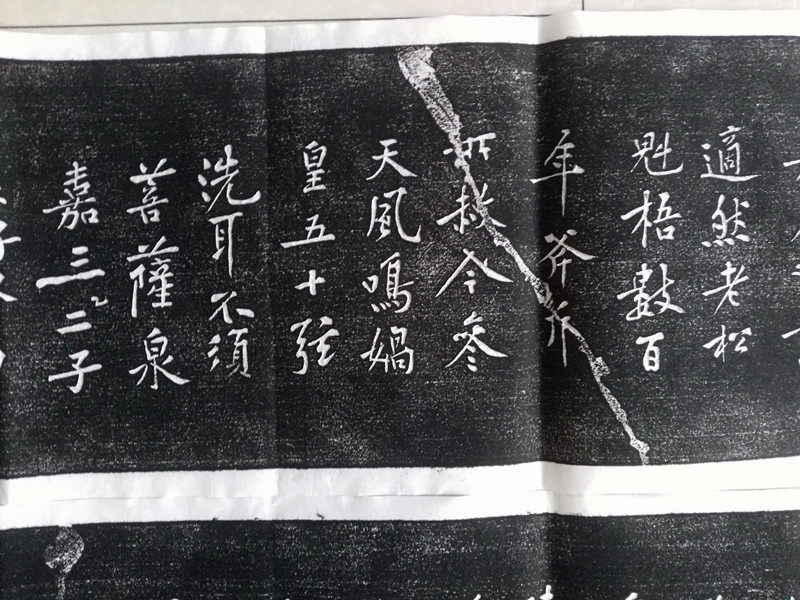 適然老松
魁梧數百
年斧斤
所赦今參
天風鳴媧
皇五十弦
洗耳不須
菩薩泉
嘉三二子